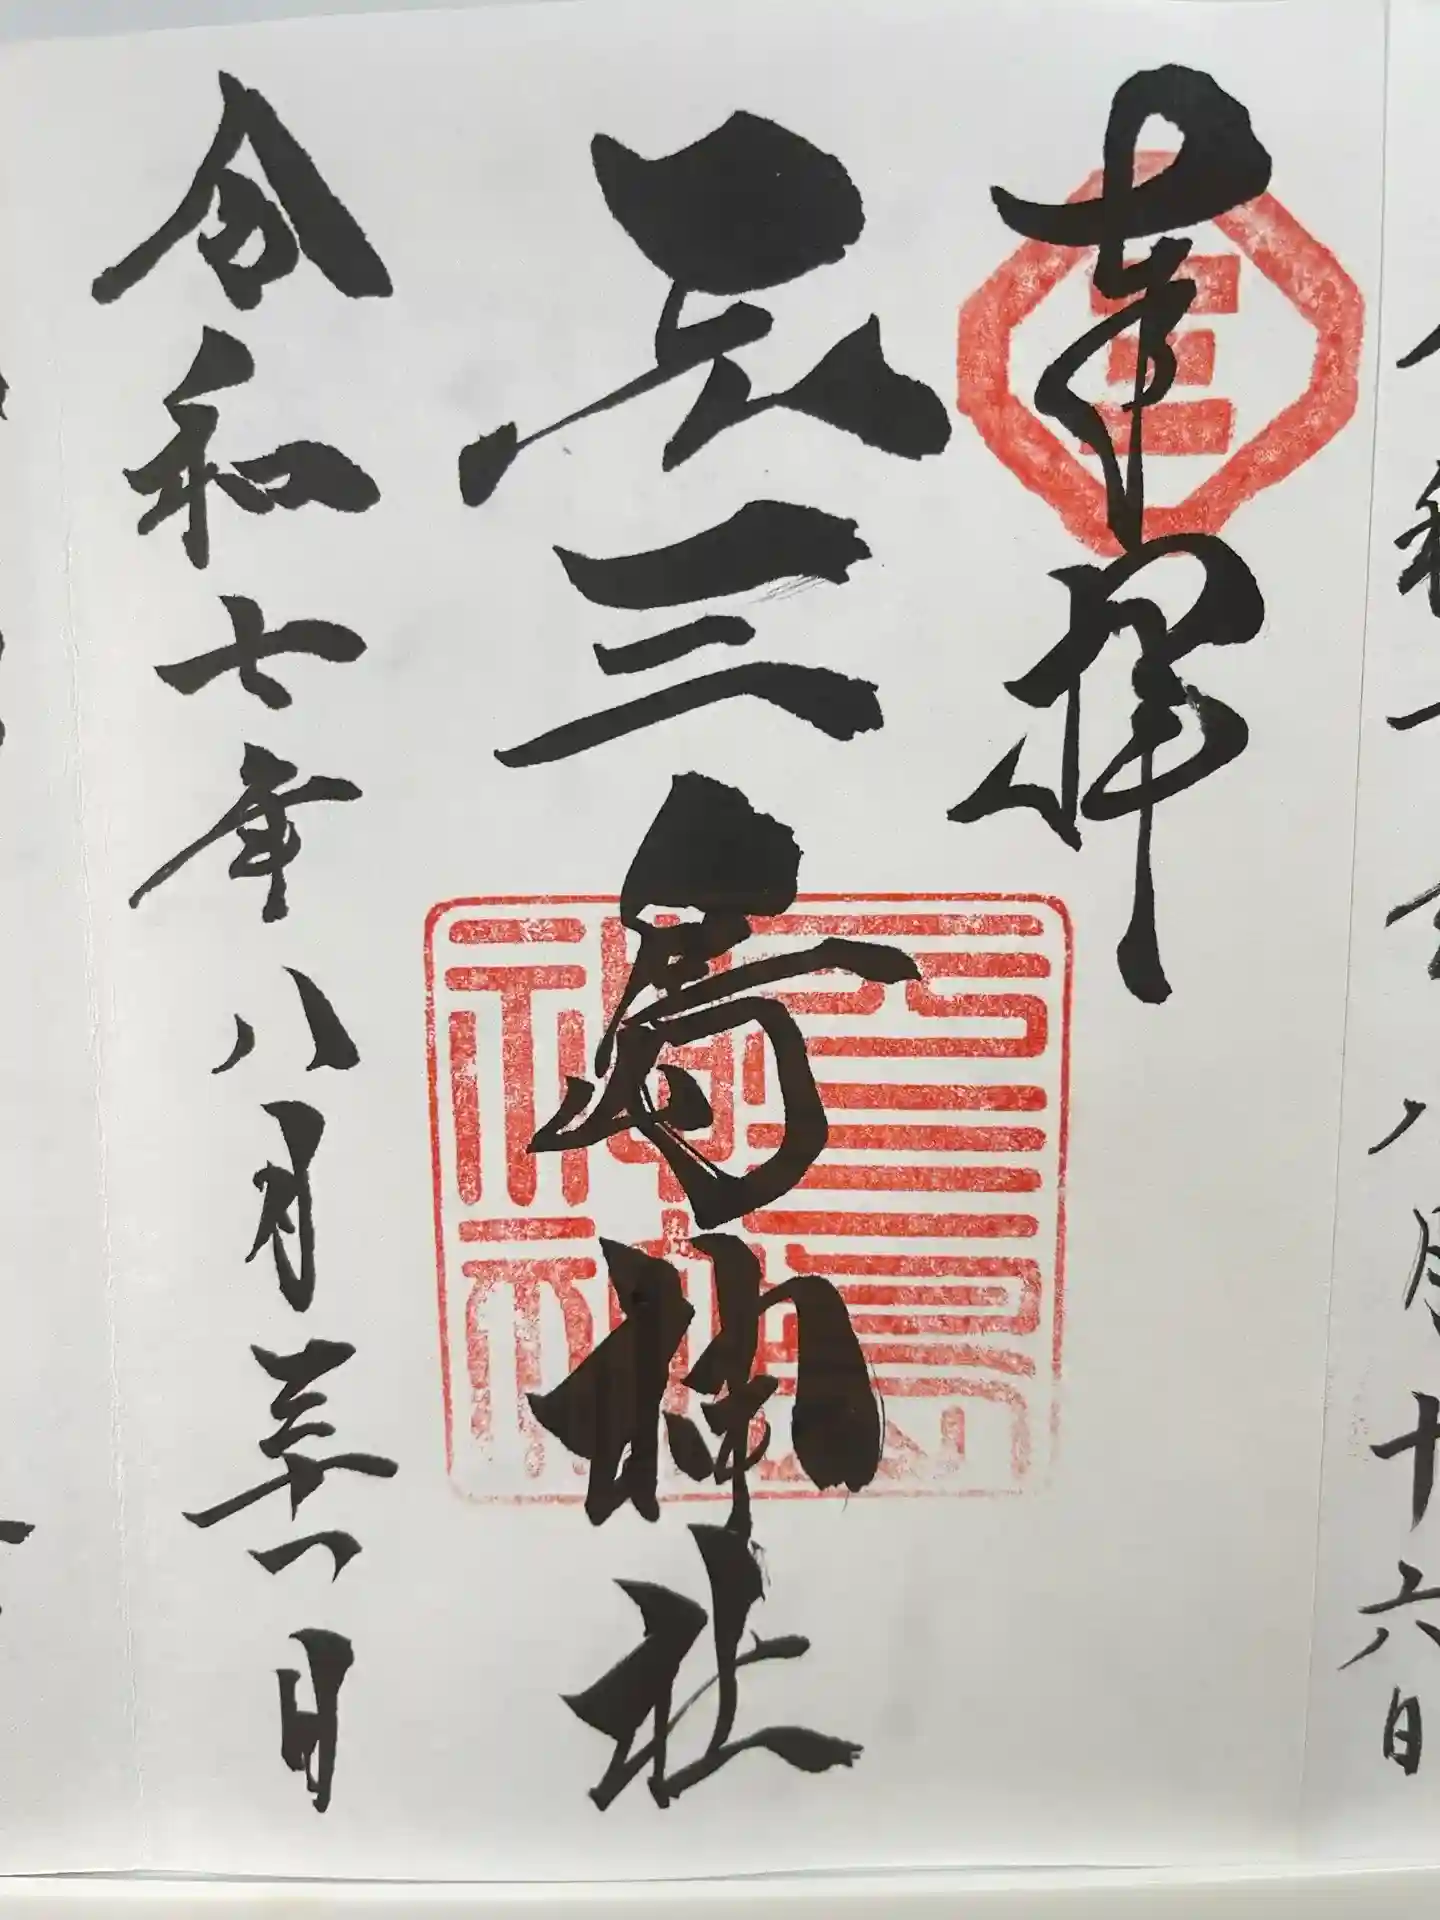 奉拝
三島神社
令和七年八月三十一日
八月十六日